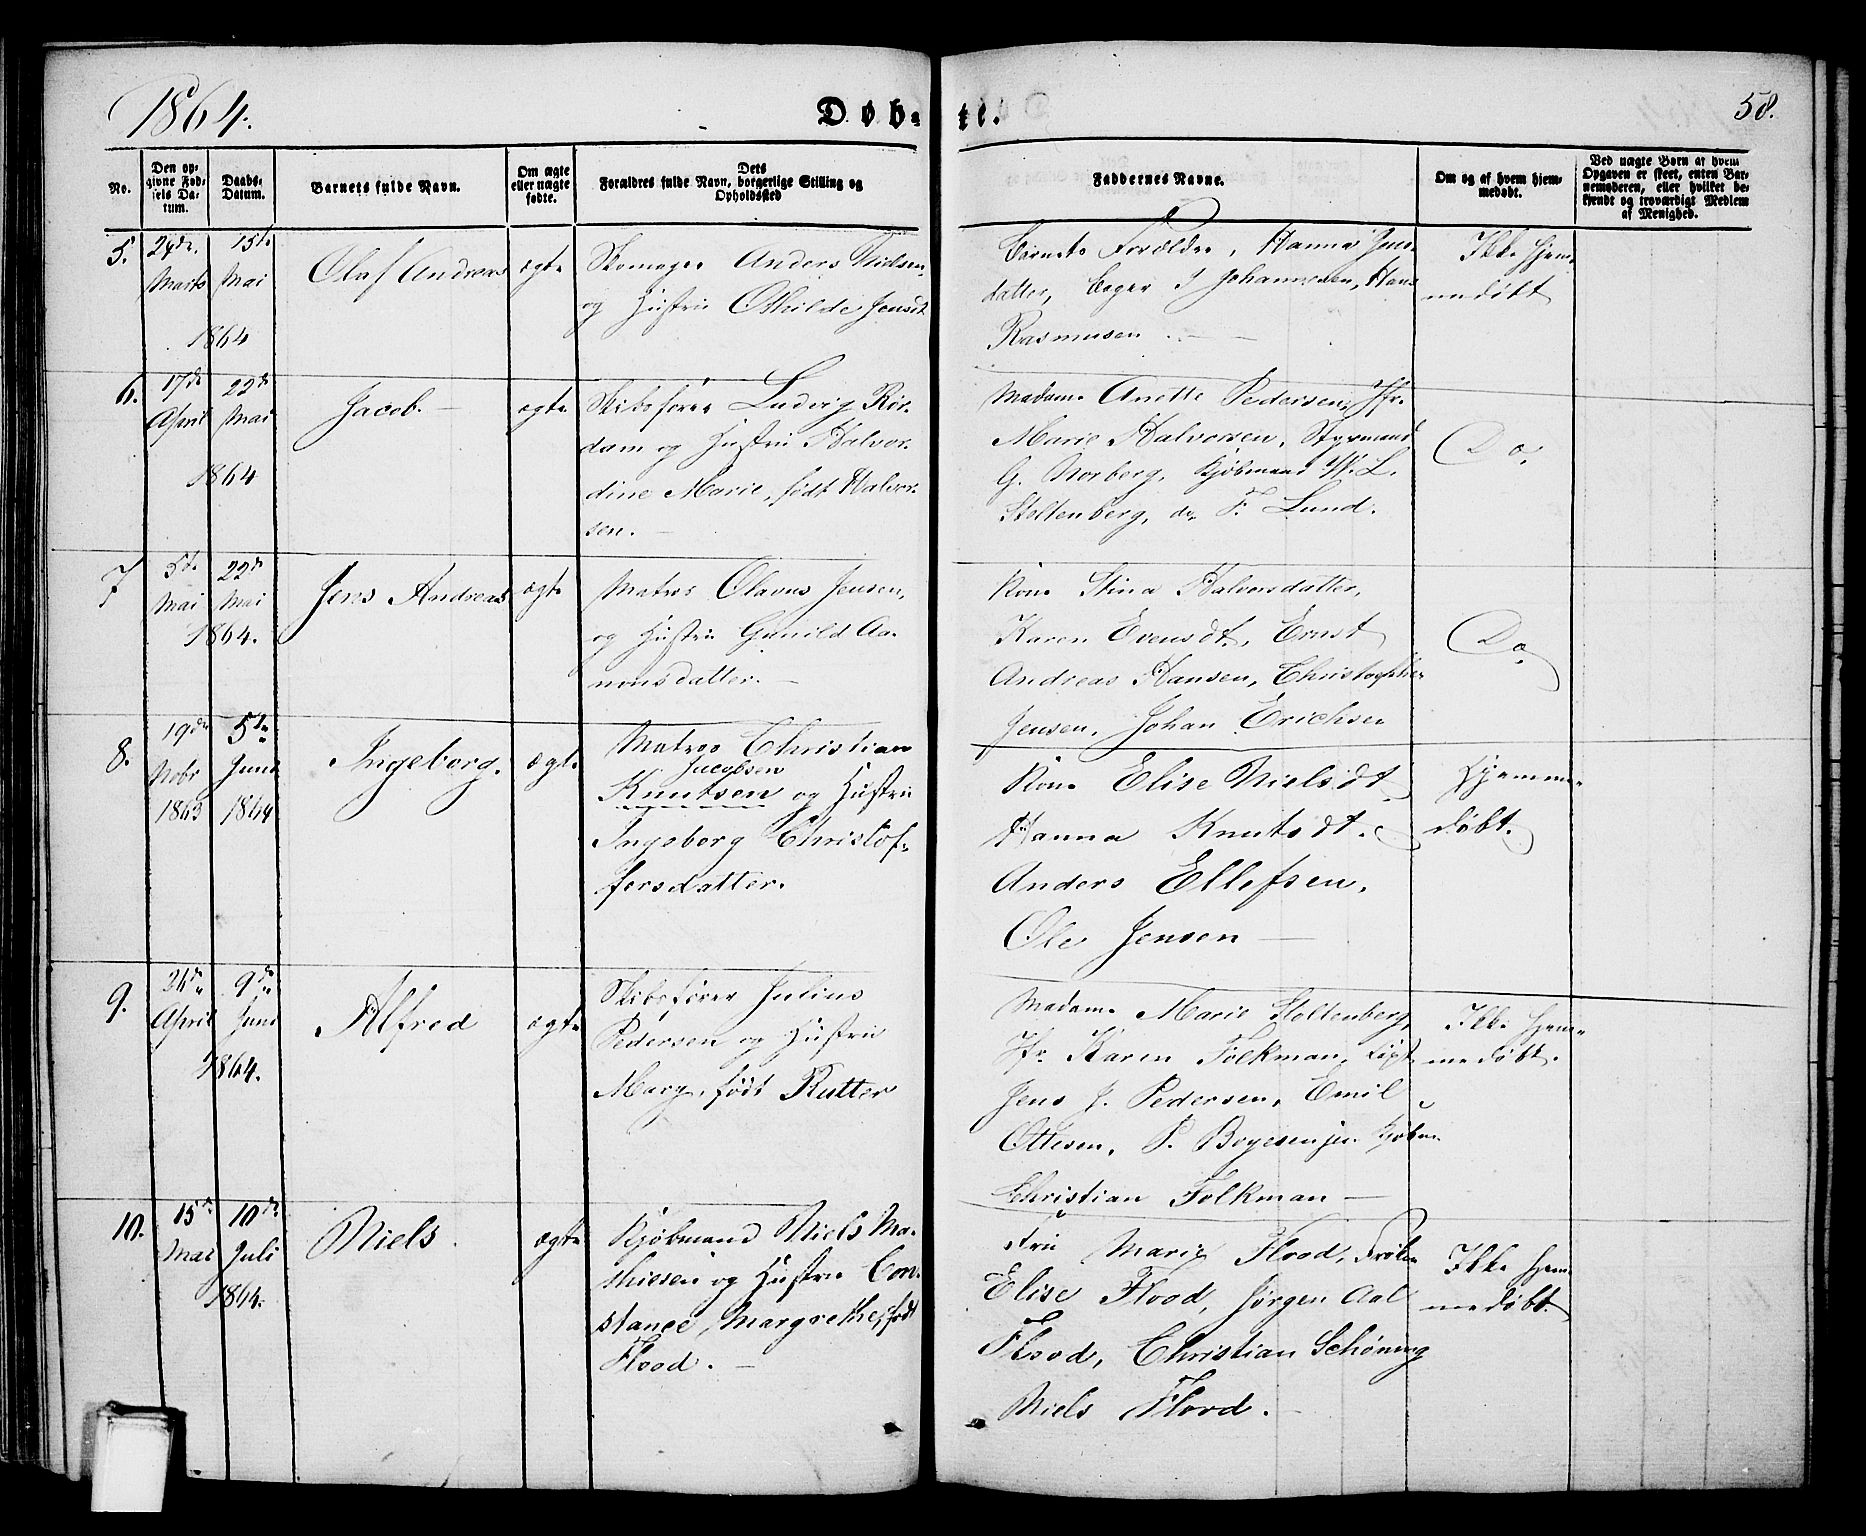 1864.
Døb-
te.
58.
No.
Den op-
givne Fød-
sels Da-
tum.
Daabs-
Datum.
Barnets fulde Navn.
Om ægte
eller uægte
fødte.
Dets
Forældres fulde Navn, borgerlige Stilling og
Opholdssted
Faddernes Navne.
Om og af hvem hjem-
medøbt.
Ved uægte Børn af hvem
Opgaven er skeet, enten Bar-
nemoderen, eller hvilket be-
kjendt og troværdigt Medlem
af Menighed.
5.
Marts
15de
Mai
1864
Olaf Andreas
ægte
Skomager Anders Nielsen
og Hustru Othilde Jensdt
Barnets Forældre, Hanna Jens-
datter, Bager J Johannesen, Hans
Rasmusen
Ikke hjem-
medøbt
6.
17de
April
22de
Mai
1864
Jacob.
ægte
Skibsfører Ludvig Rør-
dam og Hustru Halvor-
dine Marie, født Halvor-
sen.
Madame Anette Pedersen, Jfr.
Marie Halvorsen, Styrmand
G. Norberg, Kjøbmand W. L.
Stoltenberg, do F. Lund.
Do.
7
5te
Mai
22de
Mai
1864.
Jens Andreas
ægte
Matros Olavus Jensen,
og Hustru Gunild Aa-
nonsdatter.
Kone Stina Halvorsdatter,
Karen Evensdt, Ernst
Andreas Hansen, Christopher
Jensen, Johan Erichsen
Do.
8.
19de
Nobr
1863
5te
Juni
1864
Ingeborg.
ægte
Matros Christian
Jacobsen
Knutsen og Hustru
Ingeborg Christof-
fersdatter.
Kone Elise Nielsdt
Hanna Knutsdt.
Anders Ellefsen,
Ole Jensen
Hjemme-
døbt.
9.
April
9de
Juni
1864.
Alfred
ægte
Skibsfører Julius
Pedersen og Hustru
Marg. født Rutter
Madame Marie Stoltenberg,
Jfr. Karen Folkman,
Jens J. Pedersen, Emil
Ottesen, P. Boyesen jun Kjøbm.
Christian Folkman
Ikke hjem-
medøbt.
10.
15de
Mai
10de
Juli
1864.
Niels
ægte
Kjøbmand Niels Ma-
thiesen og Hustru Con-
stance, Margrethe, født
Flood.
Fru Marie Flood, Frøken
Elise Flood, Jørgen Aal
Flood, Christian Schøning
Niels Flood.
Ikke hjem
medøbt.